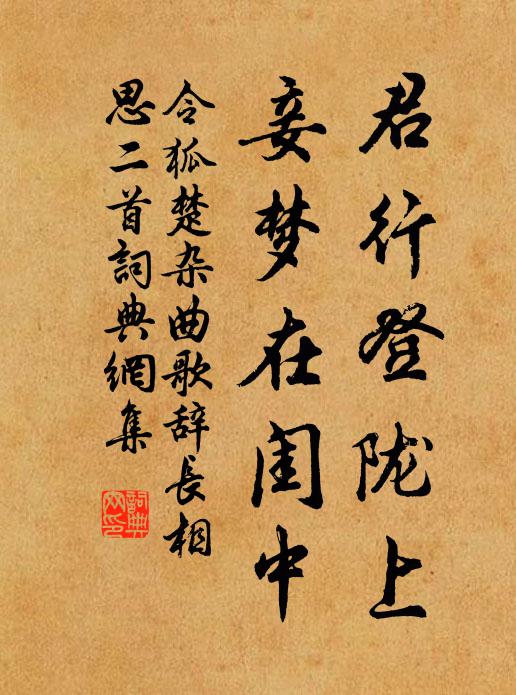 君行登陇上
妾梦在闺中
令狐楚杂曲歌辞长相
思二首詞典網集
詞典
网印